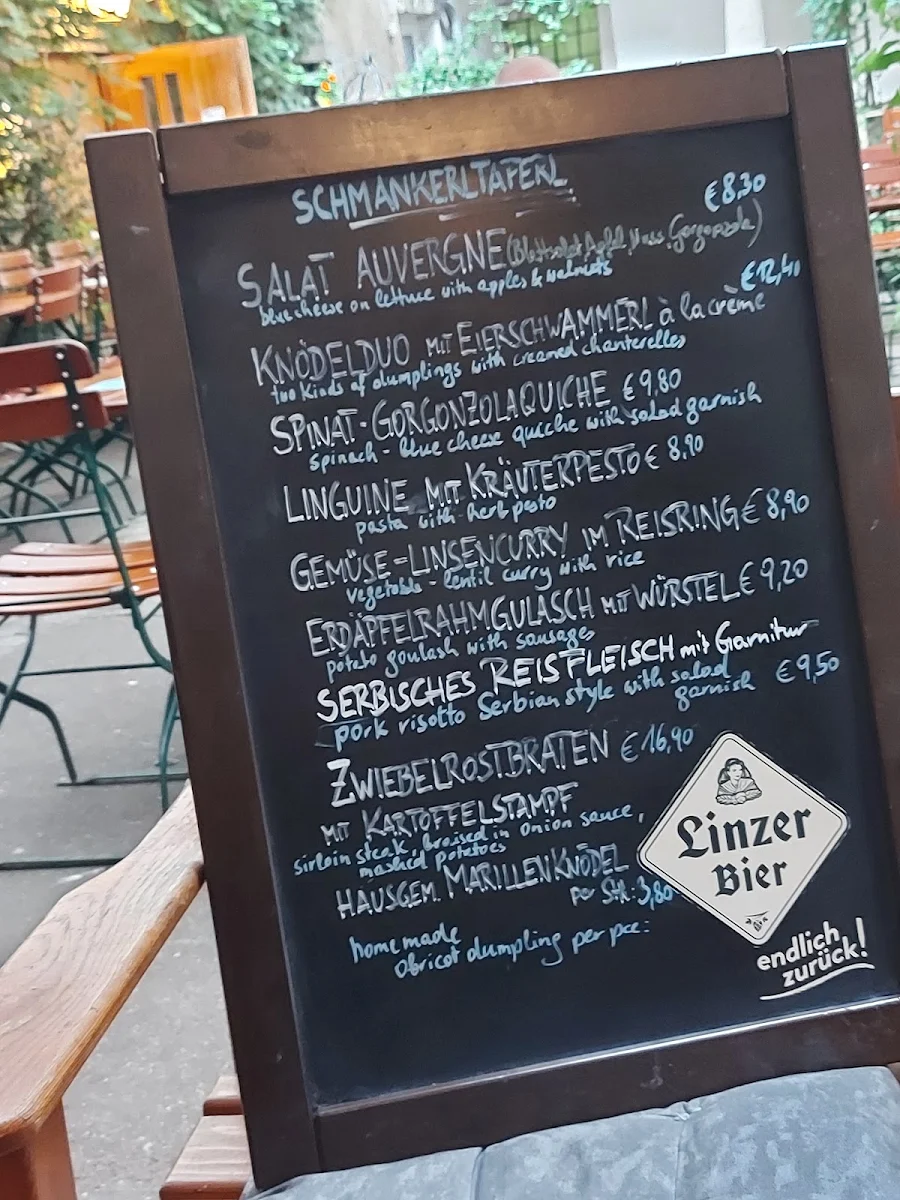 SCHMANKERLTAFERL
€8,30
SALAT AUVERGNE (Blattsalat, Apfel, Nuss, Gorgonzola)
blue cheese on lettuce with apples & walnuts
€12,40
KNÖDELDUO MIT EIERSCHWAMMERL à la crème
two kinds of dumplings with creamed chanterelles
SPINAT-GORGONZOLAQUICHE €9,80
spinach - blue cheese quiche with salad garnish
LINGUINE MIT KRÄUTERPESTO € 8,90
pasta with herb pesto
GEMÜSE-LINSENCURRY IM REISRING € 8,90
vegetable - lentil curry with rice
ERDÄPFELRAHMGULASCH MIT WÜRSTEL € 9,20
potato goulash with sausages
SERBISCHES REISFLEISCH mit Garnitur
pork risotto Serbian style with salad
garnish € 9,50
ZWIEBELROSTBRATEN €16,90
MIT KARTOFFELSTAMPF
sirloin steak, braised in onion sauce,
mashed potatoes
HAUSGEM. MARILLENKNÖDEL
per Stk.: 3,80
homemade
abricot dumpling per pce:
Linzer
Bier
endlich
zurück!